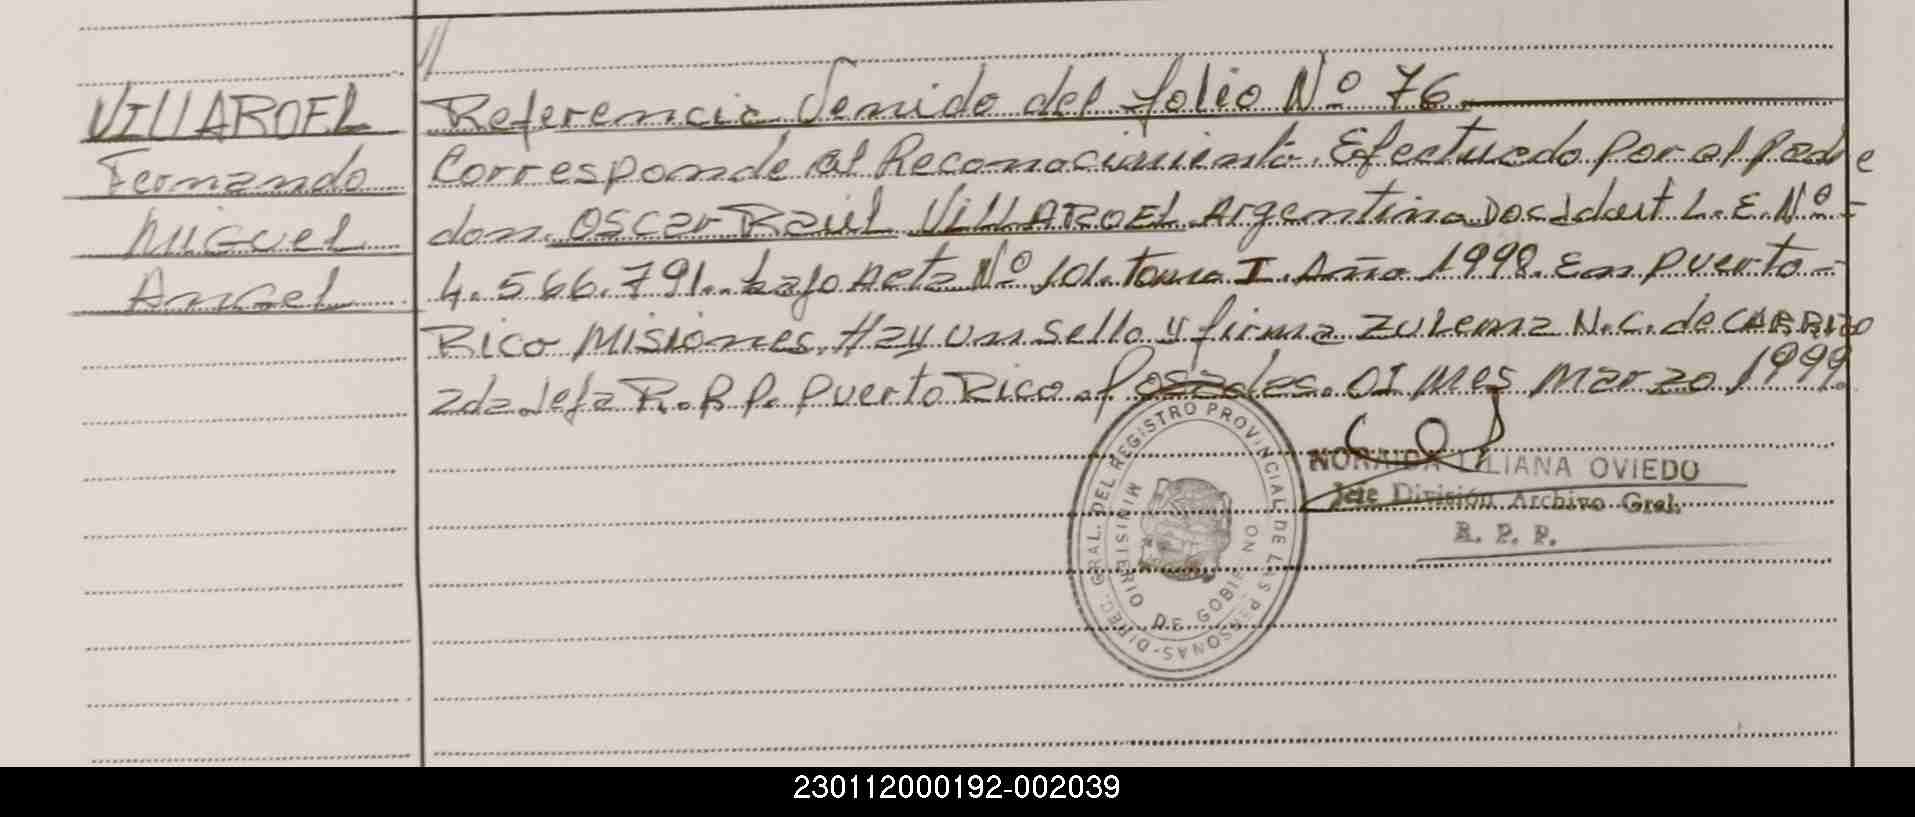 //
VILLAROEL
Fernando
Miguel
Angel
Referencia Venido del folio Nº 76
Corresponde al Reconocimiento. Efectuado por el padre
don. OSCAR Raúl VILLAROEL. Argentino Doc Ident L.E. Nº -
4.566.791. bajo Acta Nº 101. tomo I. Año 1998. En puerto -
Rico Misiones. Hay un sello y firma Zulema N.C. de CARRIZO
2da Jefa R.P.P. Puerto Rico. Posadas. 01 mes Marzo 1999.
NORAIDA LILIANA OVIEDO
Jefe División Archivo Gral.
R. P. P.
DIREC. GRAL. DEL REGISTRO PROVINCIAL DE LAS PERSONAS
MINISTERIO DE GOBIERNO
230112000192-002039